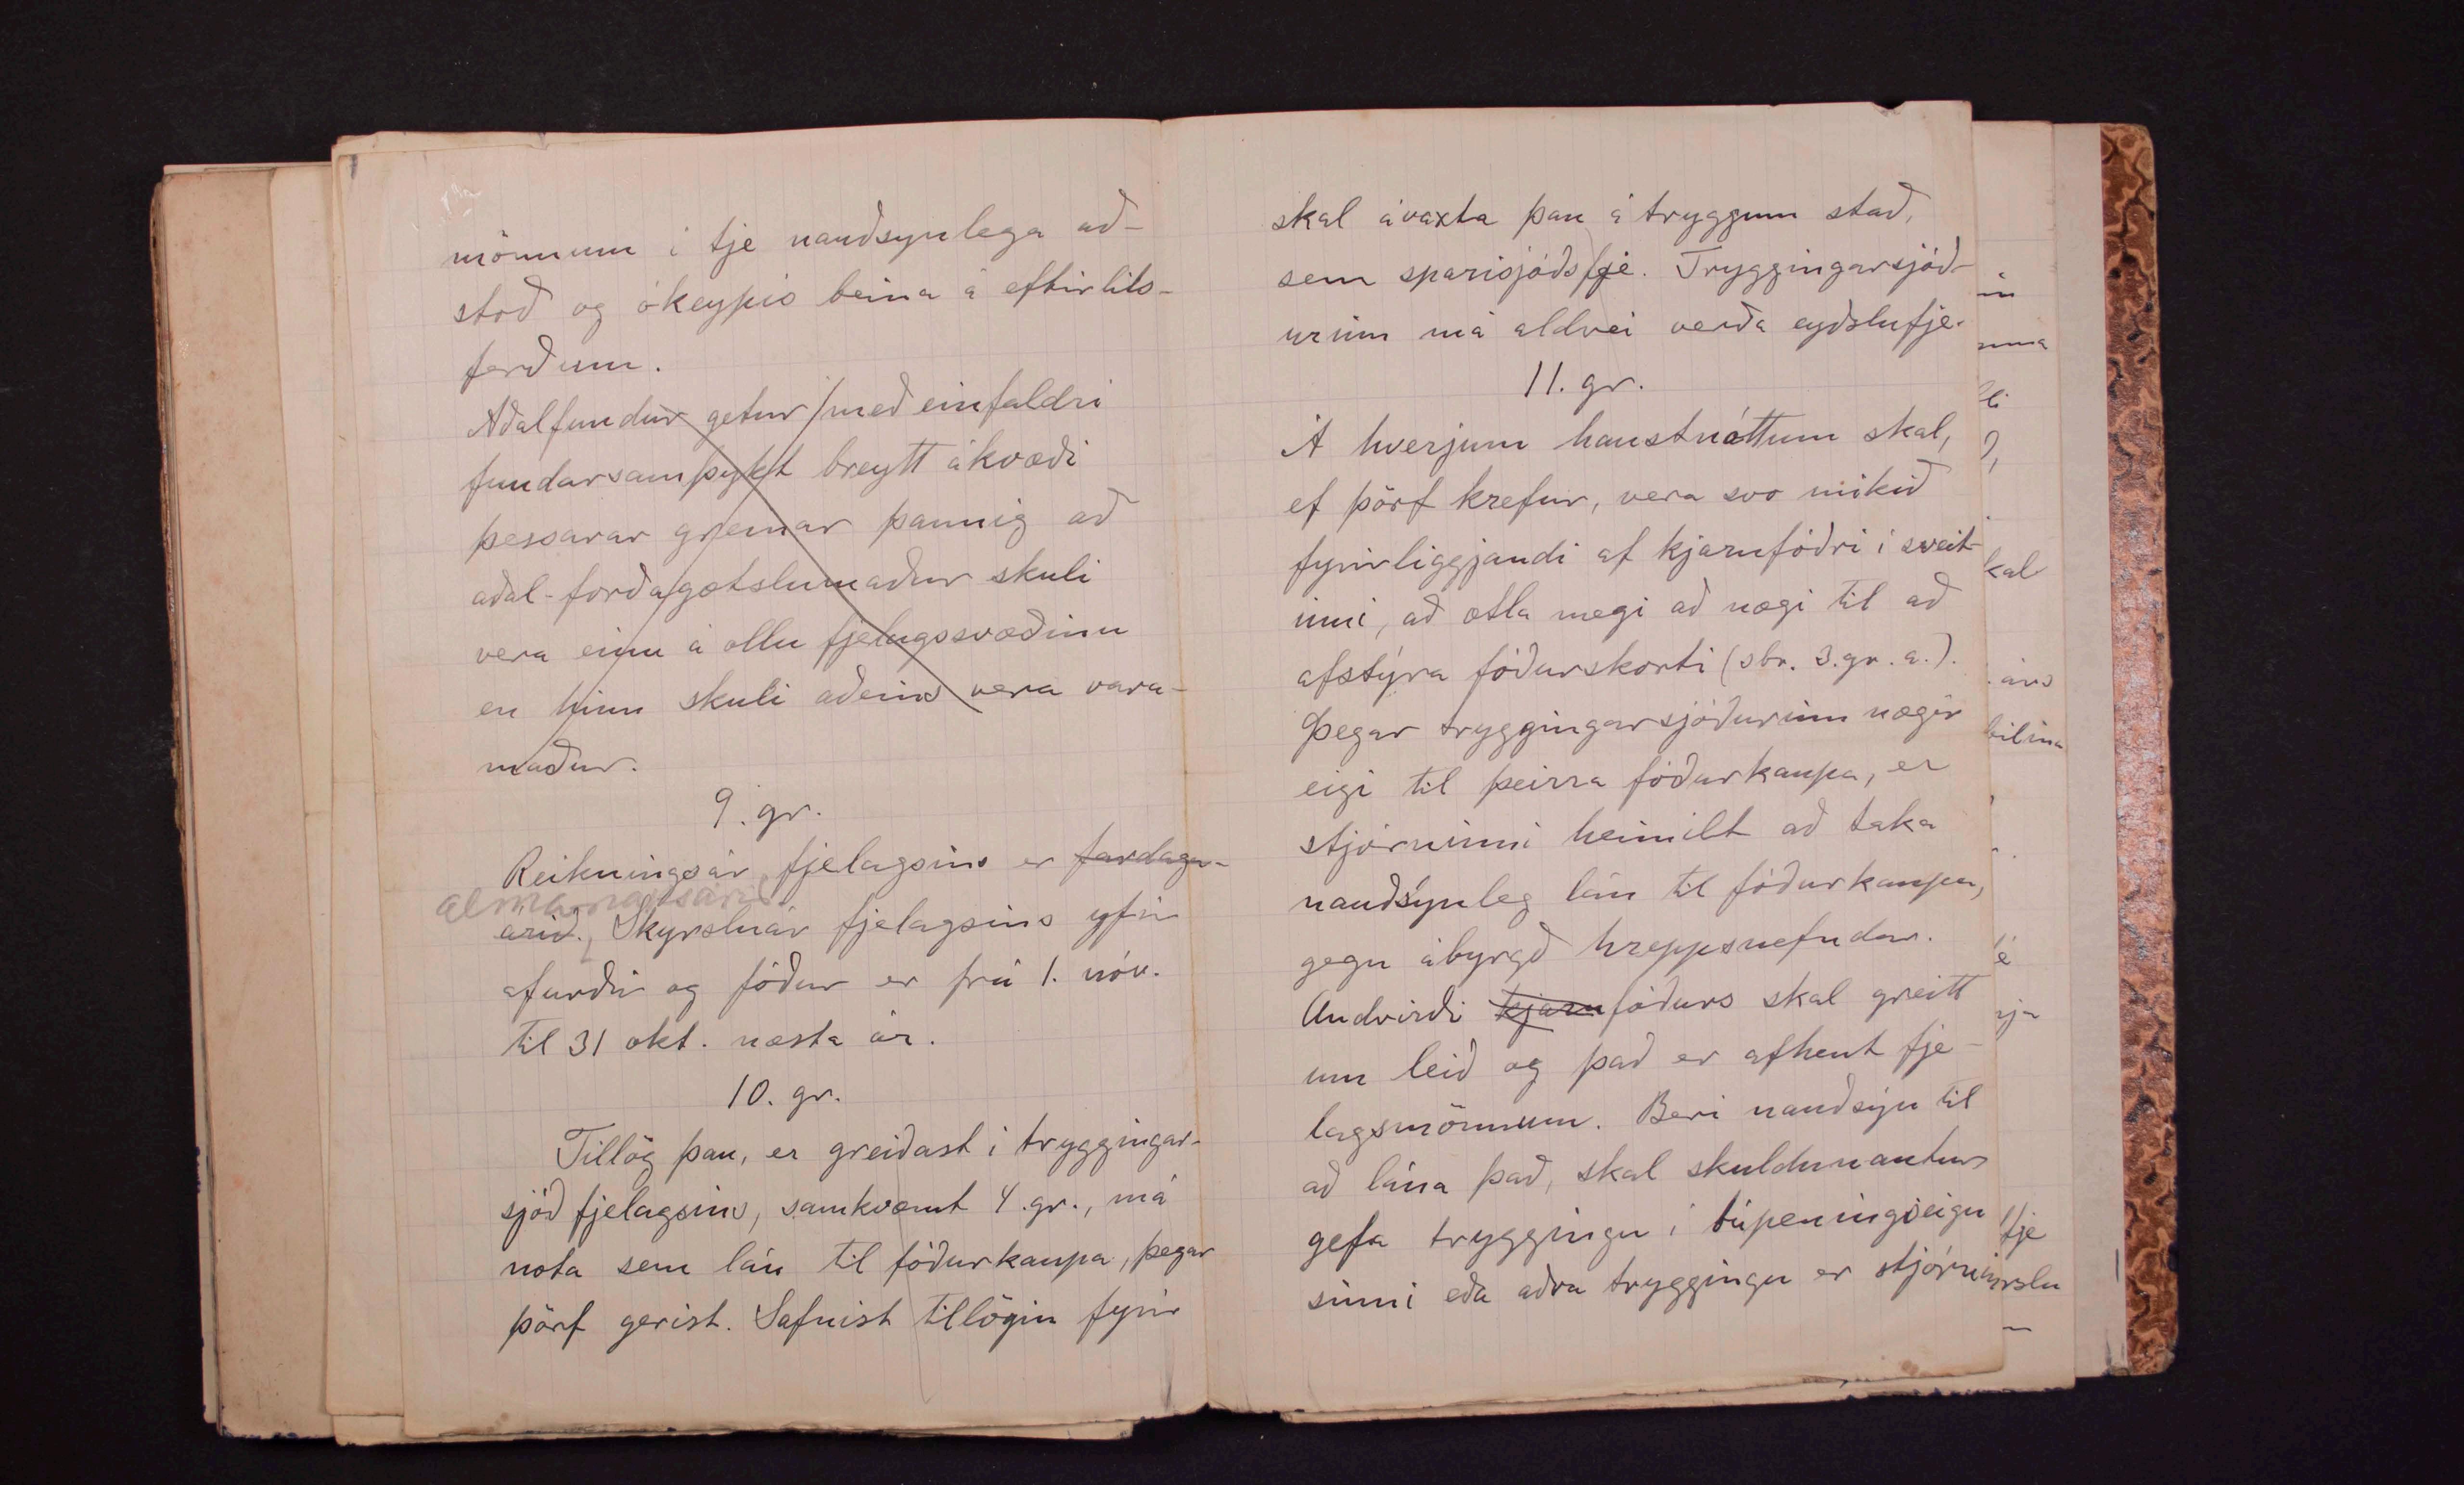 mönnum í tje nauðsynlega að-
stoð og ókeypis beina á eftirlits-
ferðum.
Aðalfundur getur með einfaldri
fundarsamþykt breytt ákvæði
þessarar greinar þannig að
aðal-forðagætslumaður skuli
vera einn á öllu fjelagssvæðinu
en hinn skuli aðeins vera vara-
maður.
9. gr.
Reikningsár fjelagsins er fardaga-
almanaksárið
árið. Skyrsluár fjelagsins yfir
afurðir og fóður er frá 1. nóv.
til 31 okt. næsta ár.
10. gr.
Tillög þau, er greiðast í tryggingar-
sjóð fjelagsins, samkvæmt 4. gr., má
nota sem lán til fóðurkaupa, þegar
þörf gerist. Safnist tillögin fyrir
skal ávaxta þau á tryggum stað,
sem sparisjóðsfje. Tryggingarsjóð-
urinn má aldrei verða eyðslufje.
11. gr.
Á hverjum haustnóttum skal,
ef þörf krefur, vera svo mikið
fyrirliggjandi af kjarnfóðri í sveit-
inni, að ætla megi að nægi til að
afstýra fóðurskorti (sbr. 3. gr. a.).
Þegar tryggingarsjóðurinn nægir
eigi til þeirra fóðurkaupa, er
stjórninni heimilt að taka
nauðsýnleg lán til fóðurkaupa,
gegn ábyrgð hreppsnefndar.
Andvirði kjarnfóðurs skal greitt
um leið og það er afhent fje-
lagsmönnum. Beri nauðsýn til
að lána það, skal skuldunautur
gefa tryggingu í búpeningseigu
sinni eða aðra tryggingu er stjórnin